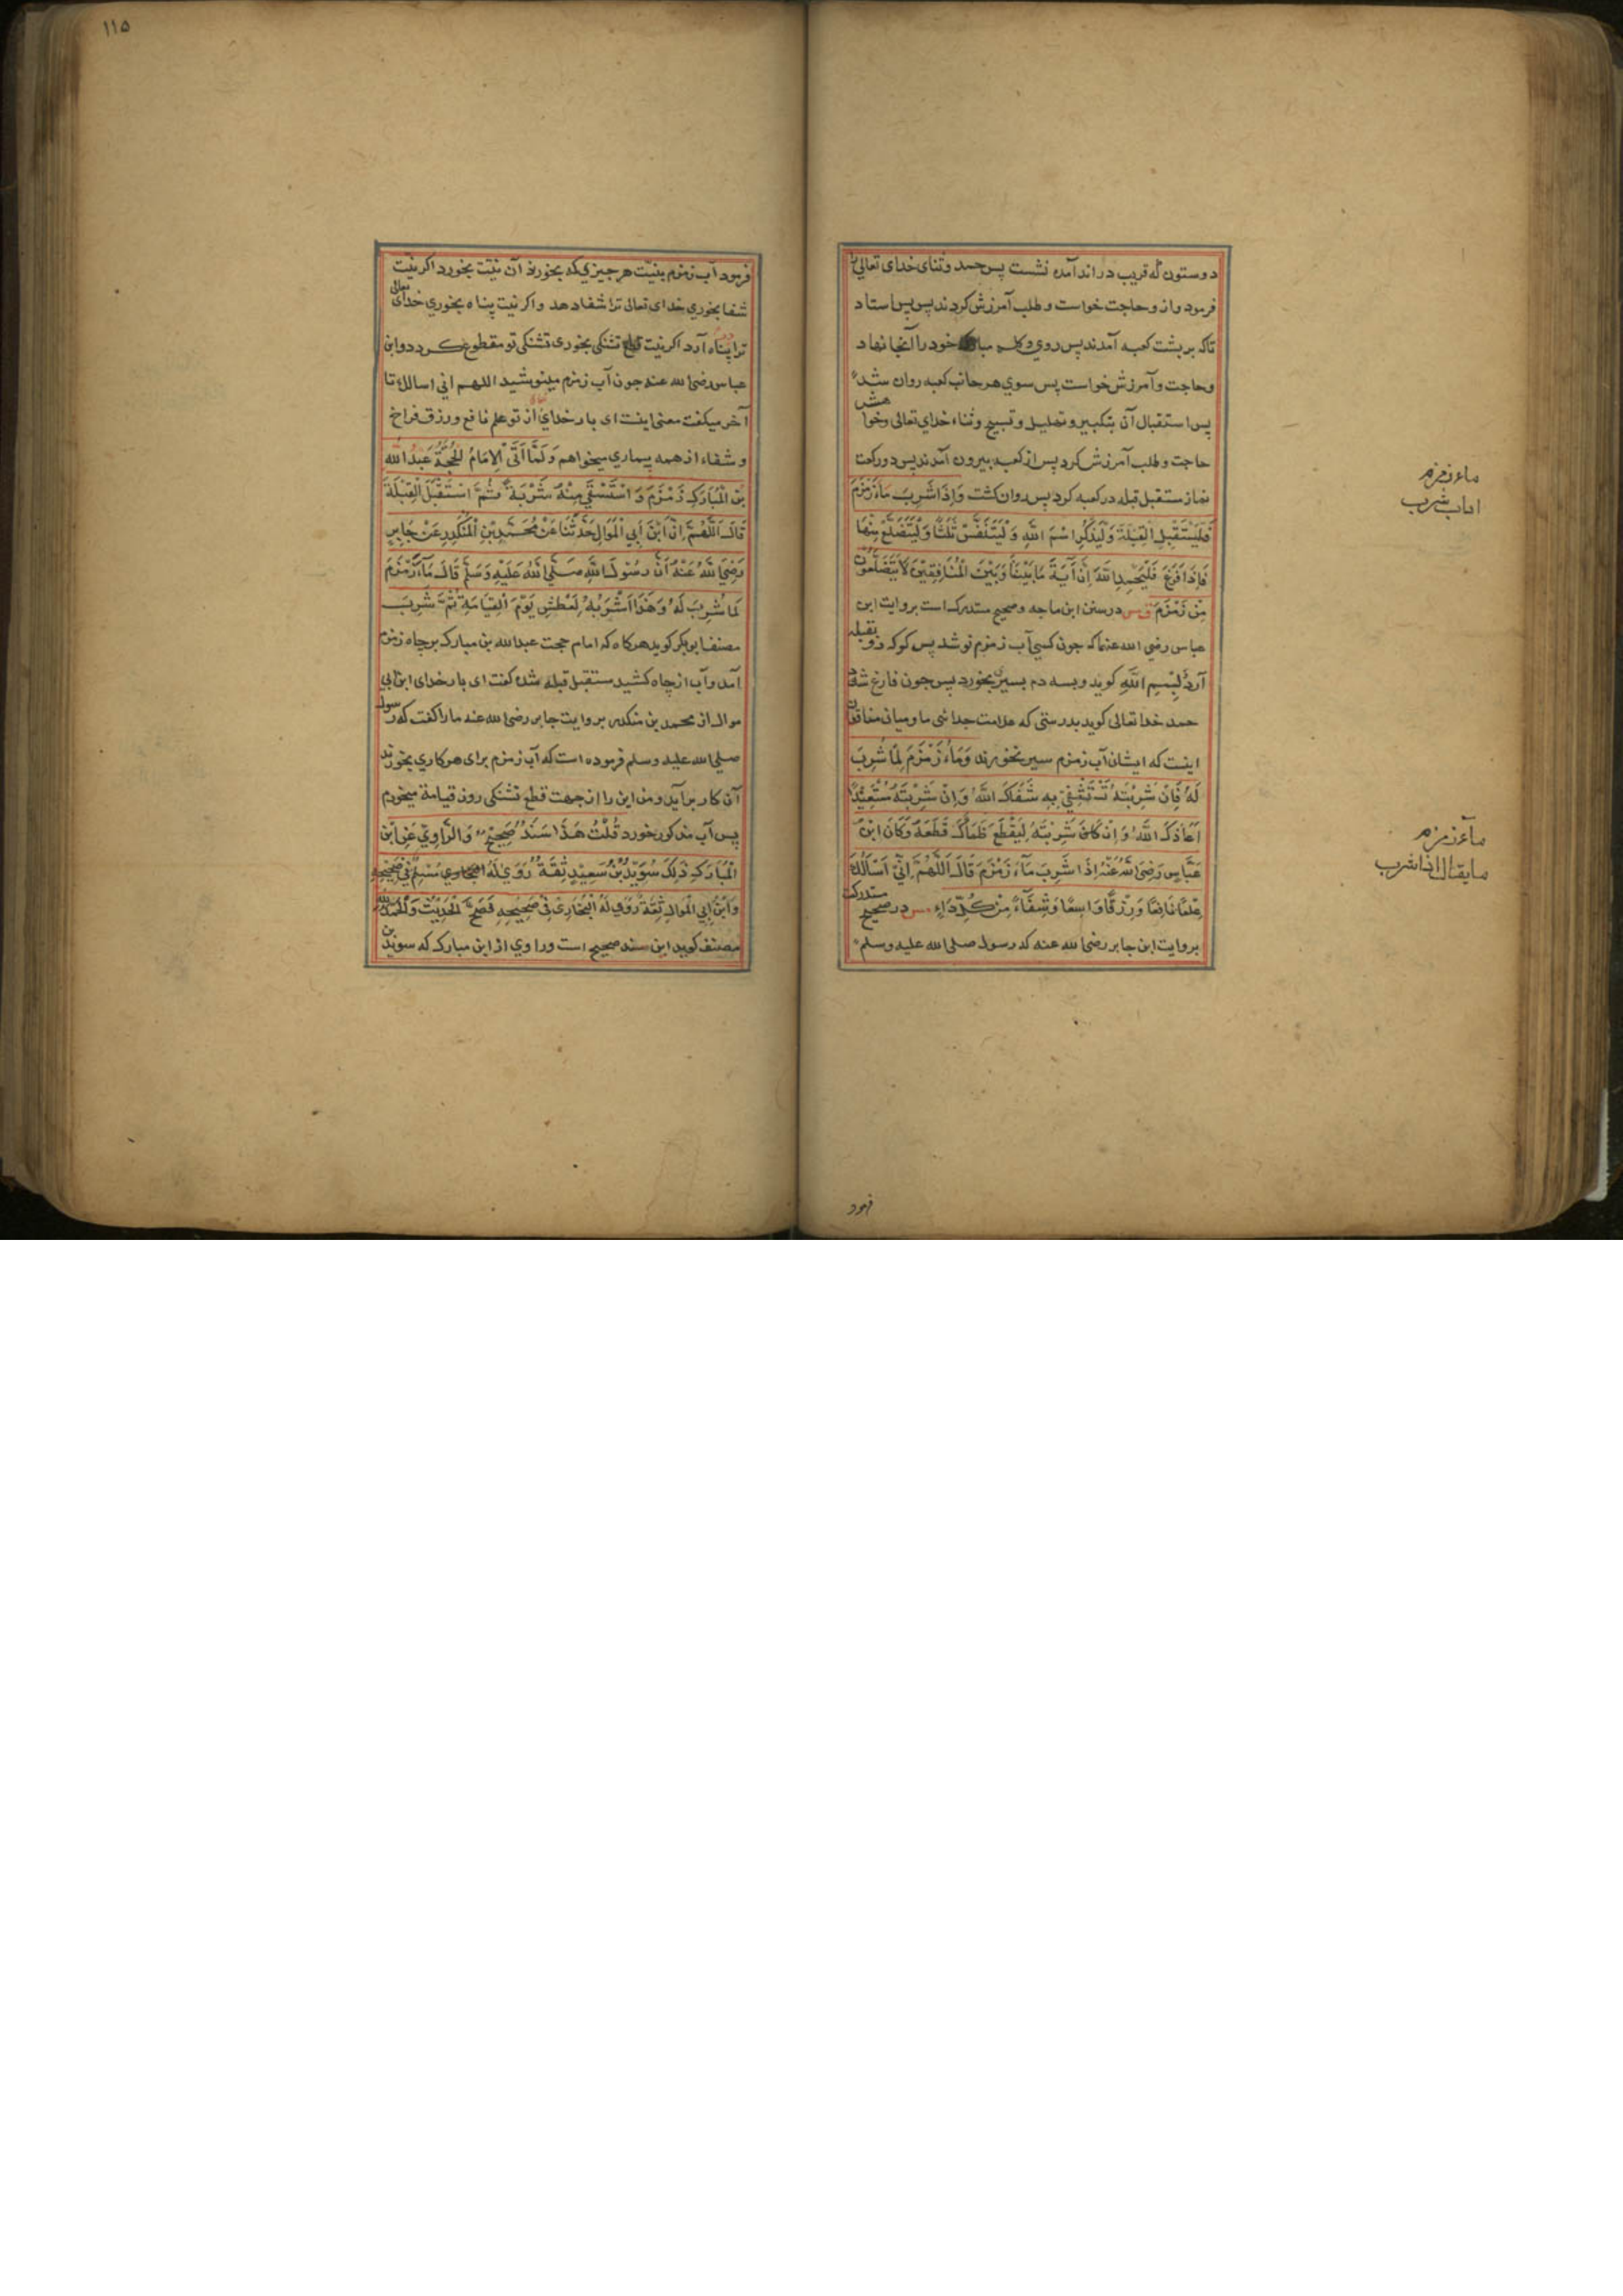 دو ستون که قریب در اند آمده نشست پس حمد و ثنای خدای تعالی
فرمود و از و حاجت خواست و طلب آمرزش کردند پس پس استاد
تاکه بر پشت کعبه آمدند پس روی و کله خود را آنجا نهاد
و حاجت و آمرزش خواست پس سوی هر جانب کعبه روان شد
پس استقبال آن بتکبیر و تهلیل و تسبیح و ثناء خدای تعالی وخوا هش
حاجت و طلب آمرزش کرد پس از کعبه بیرون آمدند پس دو رکعت
نماز مستقبل قبله در کعبه کرد پس روان کشت وَاِذَا شَرِبَ مَاءَ زَمْزَمَ
فَلْيَسْتَقْبِلِ الْقِبْلَةَ وَلْيَذْكُرِ اسْمَ اللهِ وَلْيَتَنَفَّسْ ثَلٰثًا وَلْيَتَضَلَّعْ مِنْهَا
فَاِذَا فَرَغَ فَلْيَحْمِدِ اللهَ اِنَّ آيَةَ مَا بَيْنَنَا وَبَيْنَ الْمُنَافِقِيْنَ لَا يَتَضَلَّعُوْنَ
مِنْ زَمْزَمَ ق س در سنن ابن ماجه و صحیح مستدرک است بروایت ابن
عباس رضی الله عنهما که جون کسی آب زمزم نوشد پس کوکه رو بقبله
آرد و لِبِسْمِ اللهِ کوید و بسه دم بسیر بخورد پس جون فارغ شد
حمد خدا تعالی کوید بدرستی که علامت جدائی ما و میان منافقان
اینست که ایشان آب زمزم سیر نخورند وَمَاءُ زَمْزَمَ لِمَا شُرِبَ
لَهُ فَاِنْ شَرِبْتَهُ تَسْتَشْفِيْ بِهِ شَفَاكَ اللهُ وَاِنْ شَرِبْتَهُ مُسْتَعِيْذًا
اَعَاذَكَ اللهُ وَاِنْ كَانَ شَرِبْتَهُ لِيَقْطَعَ ظَمَأَكَ قَطَعَهُ وَكَانَ ابْنُ
عَبَّاسٍ رَضِيَ اللهُ عَنْهُ اِذَا شَرِبَ مَآءَ زَمْزَمَ قَالَ اَللّٰهُمَّ اِنِّيْ اَسْاَلُكَ
عِلْمًا نَافِعًا وَرِزْقًا وَاسِعًا وَشِفَآءً مِنْ كُلِّ دَاءٍ مس در صحیح مستدرک
بروایت ابن جابر رضی الله عنه که رسول صلی الله علیه وسلم
ماء زمزم
اداب شرب
مآء زمزم
ما یقال اذا شرب
فرمود
۱۱۵
فرمود آب زمزم بنیت هر جیزی که بخورند آن نیت بخورد اکر نیت
شفا بخوری خدای تعالی ترا شفا دهد و اکر نیت پناه بخوری خدای تعالی
ترا پناه آرد اکر نیت قطع تشنکی بخوری تشنکی تو مقطوع کردد و ابن
عباس رضی الله عنه جون آب زمزم مینوشید اللهم انی اسالك تا
آخر میکفت معنی اینست ای بار خدای از تو علم نافع و رزق فراخ
و شفاء از همه بیماری میخواهم وَلَمَّا اَتَى الْاِمَامُ الْحُجَّةُ عَبْدُ اللهِ
بْنُ الْمُبَارَكِ زَمْزَمَ وَاسْتَسْقٰي مِنْهُ شَرْبَةً ثُمَّ اسْتَقْبَلَ الْقِبْلَةَ
قَالَ اَللّٰهُمَّ اِنَّ ابْنَ اَبِي الْمَوَالِ حَدَّثَنَا عَنْ مُحَمَّدِ بْنِ الْمُنْكَدِرِ عَنْ جَابِرٍ
رَضِيَ اللهُ عَنْهُ اَنَّ رَسُوْلَ اللهِ صَلَّى اللهُ عَلَيْهِ وَسَلَّمَ قَالَ مَآءُ زَمْزَمَ
لِمَا شُرِبَ لَهُ وَهٰذَا اَشْرَبُهُ لِعَطَشِ يَوْمَ الْقِيَامَةِ ثُمَّ شَرِبَ
مصنف ابوبکر کوید هرکاه که امام حجت عبدالله بن مبارک بر چاه زمزم
آمد و آب از چاه کشید مستقبل قبله شده کفت ای بار خدای ابن ابی
موال از محمد بن منکدر بروایت جابر رضی الله عنه ما را کفت که رسول
صلی الله علیه وسلم فرموده است که آب زمزم برای هر کاری بخورند
آن کار برآید و من این را از جهت قطع تشنکی روز قیامة میخورم
پس آب مذکور خورد قُلْتُ هَذَا سَنَدٌ صَحِيْحٌ وَالرَّاوِيْ عَنِ ابْنِ
الْمُبَارَكِ ذٰلِكَ سُوَيْدُ بْنُ سَعِيْدٍ ثِقَةٌ رَوٰي لَهُ مُسْلِمٌ فِيْ صَحِيْحِهِ
وَابْنُ اَبِي الْمَوَالِ ثِقَةٌ رَوٰي لَهُ الْبُخَارِيُّ فِيْ صَحِيْحِهِ فَصَحَّ الْحَدِيْثُ وَالْحَمْدُ لِلّٰهِ
مصنف کوید این سند صحیح است و راوی از ابن مبارک که سوید بن